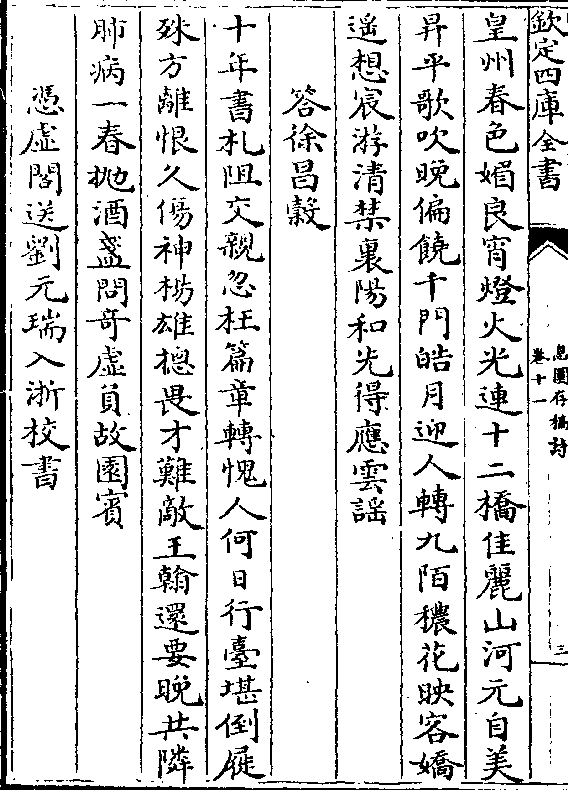 欽定四庫全書
息園存稿詩
卷十一
三
皇州春色媚良宵燈火光連十二橋佳麗山河元自美
昇平歌吹晚偏饒千門皓月迎人轉九陌穠花映客嬌
遥想宸游清禁裏陽和先得應雲謡
答徐昌糓
十年書札阻交親忽枉篇章轉愧人何日行臺堪倒屣
殊方離恨久傷神楊雄摠畏才難敵王翰還要晚共隣
肺病一春抛酒盞問奇虚負故園賓
憑虚閣送劉元瑞入浙校書